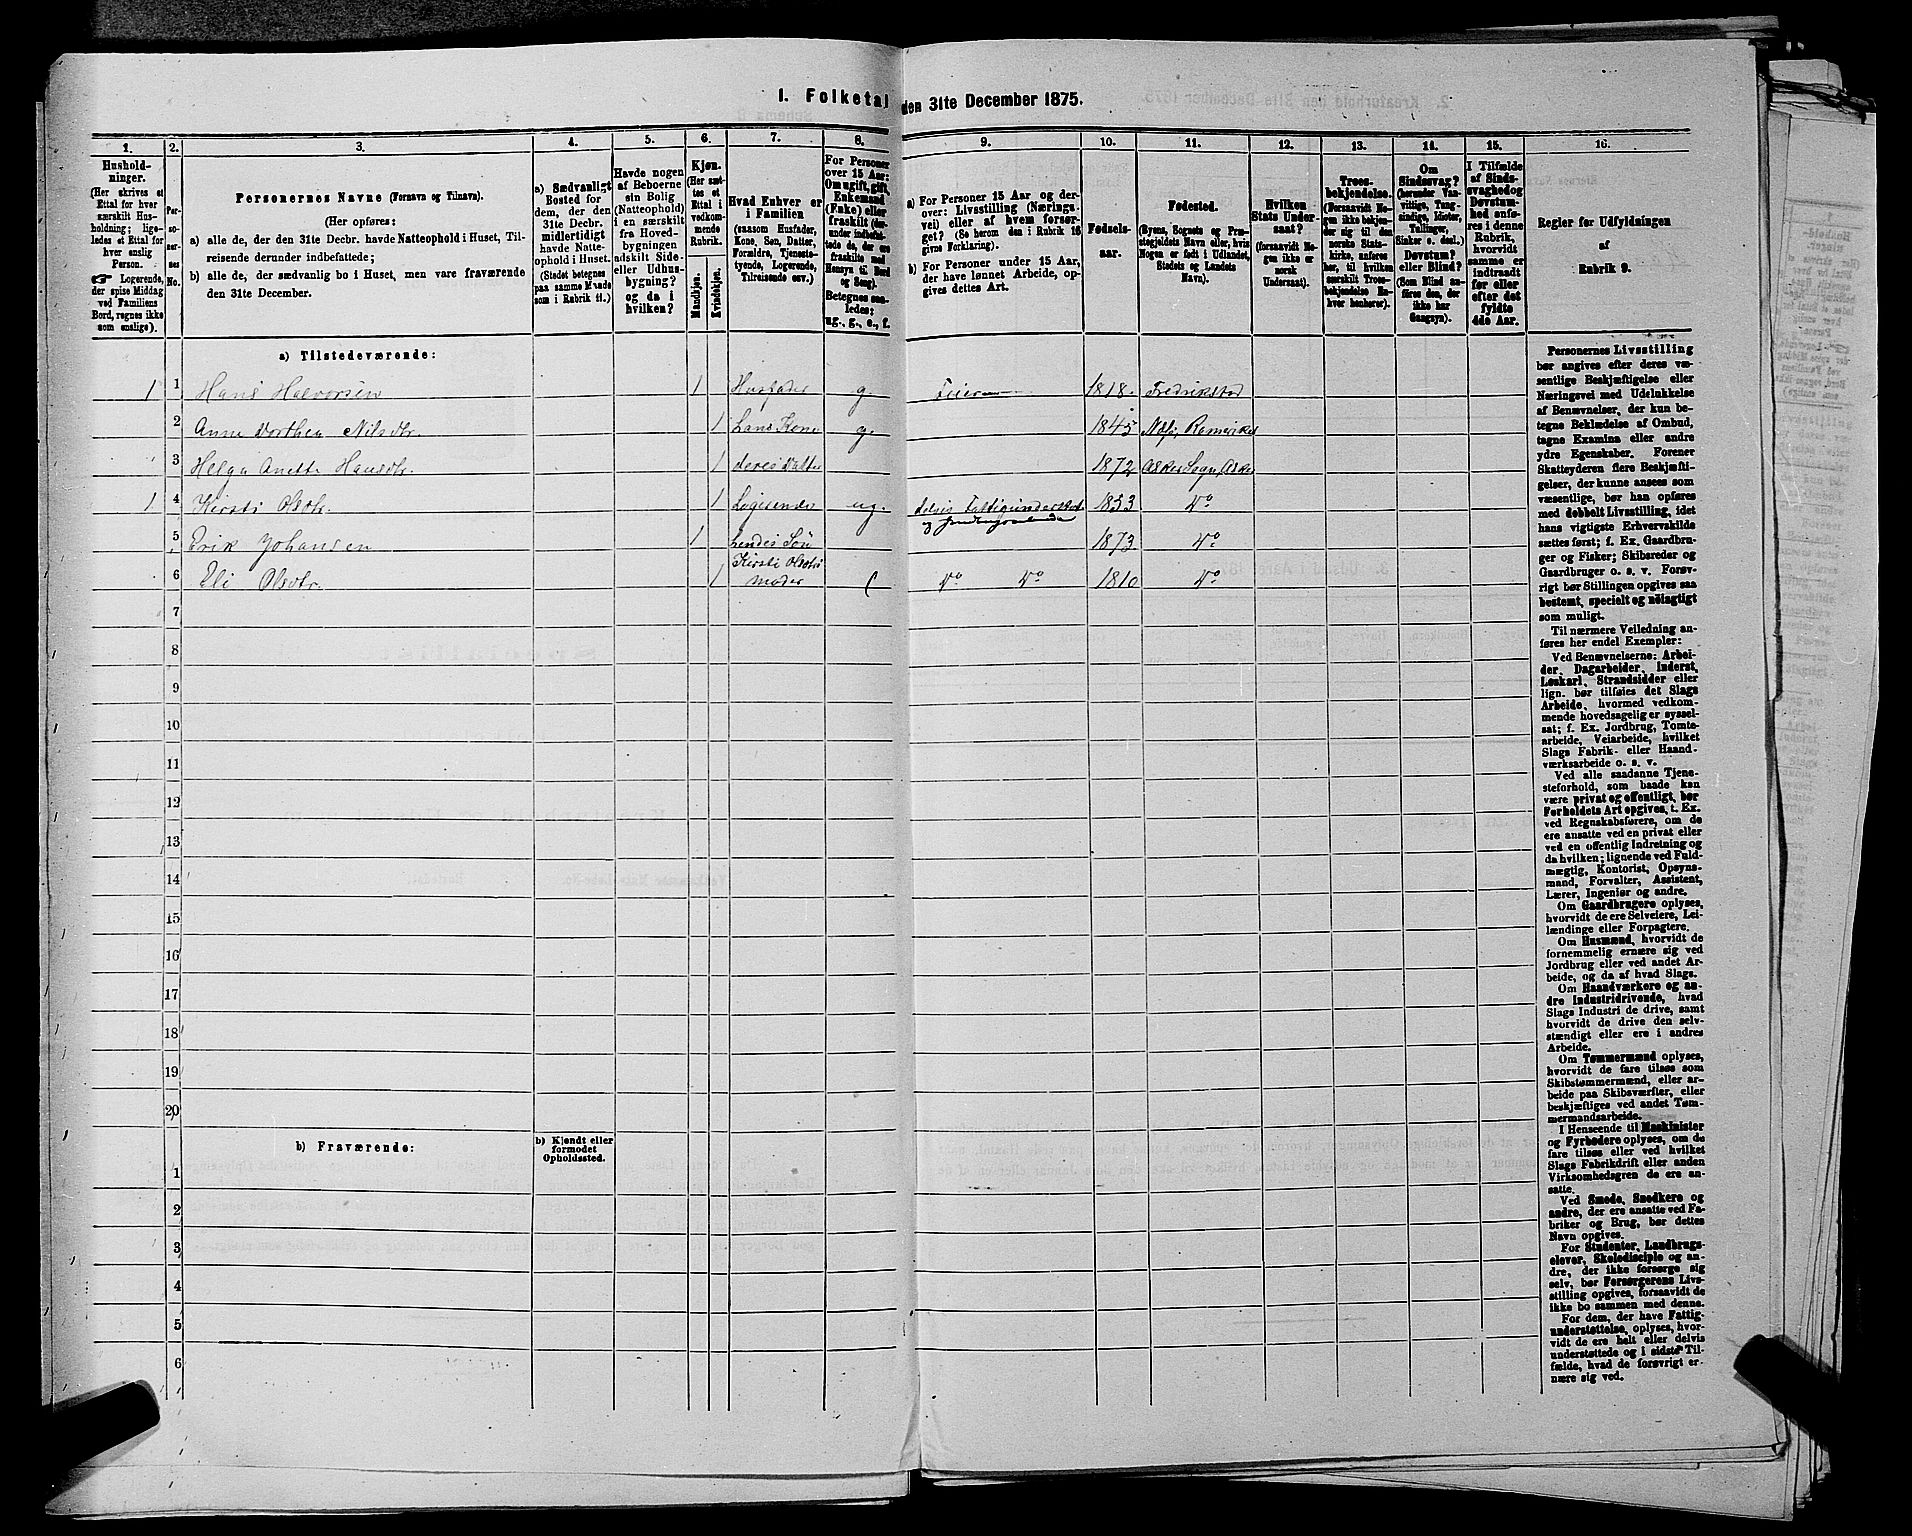 1. Folketal den 31te December 1875.
1. 2. 3. 4. 5. 6. 7. 8. 9. 10. 11. 12. 13. 14. 15. 16.
Hushold-
ninger.
(Her skrives et
Ettal for hver
særskilt Hus-
holdning; lige-
ledes et Ettal for
hver enslig
Person.
☞ Logerende,
der spise Middag
ved Familiens
Bord, regnes ikke
som enslige).
Per-
so-
ner-
nes
No.
Personernes Navne (Fornavn og Tilnavn).
(Her opføres:
a) alle de, der den 31te Decbr. havde Natteophold i Huset, Til-
reisende derunder indbefattede;
b) alle de, der sædvanlig bo i Huset, men vare fraværende
den 31te December.
a) Sædvanligt
Bosted for
dem, der den
31te Decbr.
midlertidigt
havde Natte-
ophold i Huset.
(Stedet betegnes
paa samme Maade
som i Rubrik 11.)
Havde nogen
af Beboerne
sin Bolig
(Natteophold)
i en særskilt
fra Hoved-
bygningen
adskilt Side-
eller Udhus-
bygning?
og da i
hvilken?
Kjøn.
(Her sæt-
tes et
Ettal i
vedkom-
mende
Rubrik.
Mandkjøn.
Kvindekjøn.
Hvad Enhver er
i Familien
(saasom Husfader,
Kone, Søn, Datter,
Forældre, Tjeneste-
tyende, Logerende,
Tilreisende osv.)
For Personer
over 15 Aar:
Om ugift, gift,
Enkemand
(Enke) eller
fraskilt (der-
under indbefat-
tede de, der ere
fraskilte med
Hensyn til Bord
og Seng).
Betegnes saa-
ledes:
ug., g., e., f.
a) For Personer 15 Aar og der-
over: Livsstilling (Nærings-
vei) eller af hvem forsør-
get? (Se herom den i Rubrik 16
givne Forklaring).
b) For Personer under 15 Aar,
der have lønnet Arbeide, op-
gives dettes Art.
Fødsels-
aar.
Fødested.
(Byens, Sognets og Præ-
stegjeldets Navn eller, hvis
Nogen er født i Udlandet,
Stedets og Landets
Navn).
Hvilken
Stats Under-
saat?
(forsaavidt No-
gen ikke er
norsk
Undersaat).
Troes-
bekjendelse.
(Forsaavidt No-
gen ikke bekjen-
der sig til den
norske Stats-
kirke, anføres
her, til hvilken
særskilt Troes-
bekjendelse En-
hver henhører).
Om
Sindssvag?
(herunder Van-
vittige, Tung-
sindige, Idioter,
Tullinger,
Sinker o. desl.)
Døvstum?
eller Blind?
(Som Blind an-
føres den, der
ikke har
Gangsyn).
I Tilfælde
af Sinds-
svaghed og
Døvstum-
hed anfø-
res i denne
Rubrik,
hvorvidt
samme er
indtraadt
før eller
efter det
fyldte
4de Aar.
Regler for Udfyldningen
af
Rubrik 9.
a) Tilstedeværende:
1 1 Hans Halvorsen 1 Husfader g. Feier 1818 Fredrikstad
2 Anne Dorthea Nilsdtr. 1 hans Kone g. 1845
3 Helga Anette Hansdtr. 1 deres Datter 1872 Asker Sogn, Asker
1 4 Kirsti Olsdtr. 1 Logerende ug. delvis Fattigunderstøt 1833 Do
5 Erik Johansen 1 hendes Søn 1873 Do
6 Eli Olsdtr. 1 Kirsti Olsdtrs Moder Do Do 1810 Do
7
8
9
10
11
12
13
14
15
16
17
18
19
20
b) Fraværende:
b) Kjendt eller
formodet
Opholdssted.
1
2
3
4
5
6
Personernes Livsstilling
bør angives efter deres væ-
sentlige Beskjæftigelse eller
Næringsvei med Udelukkelse
af Benævnelser, der kun be-
tegne Beklædelse af Ombud,
tagne Examina eller andre
ydre Egenskaber. Forener
Skatteyderen flere Beskjæfti-
gelser, der kunne ansees som
væsentlige, bør han opføres
med dobbelt Livsstilling, idet
hans vigtigste Erhvervskilde
sættes først; f. Ex. Gaardbru-
ger og Fisker; Skibsreder og
Gaardbruger o. s. v. Forøv-
rigt bør Stillingen opgives saa
bestemt, specielt og nöiagtigt
som muligt.
Til nærmere Veiledning an-
føres her endel Exempler:
Ved Benævnelserne: Arbei-
der, Dagarbeider, Inderst,
Løskarl, Strandsidder eller
lign. bør tilføies det Slags
Arbeide, hvormed vedkom-
mende hovedsagelig er syssel-
sat; f. Ex. Jordbrug, Tomte-
arbeide, Veiarbeide, hvilket
Slags Fabrik- eller Haand-
værksarbeide o. s. v.
Ved alle saadanne Tjene-
steforhold, som baade kan
være privat og offentligt, bør
Forholdets Art opgives, t. Ex.
ved Regnskabsførere, om de
ere ansatte ved en privat eller
ved en offentlig Indretning og
da hvilken; lignende ved Fuld-
mægtig, Kontorist, Opsyns-
mand, Forvalter, Assistent,
Lærer, Ingeniør og andre.
Om Gaardbrugere oplyses,
hvorvidt de ere Selveiere, Lei-
lændinge eller Forpagtere.
Om Husmænd, hvorvidt de
fornemmelig ernære sig ved
Jordbrug eller ved andet Ar-
beide, og da af hvad Slags.
Om Haandværkere og an-
dre Industridrivende, hvad
Slags Industri de drive, samt
hvorvidt de drive den selv-
stændigt eller ere i andres
Arbeide.
Om Tømmermænd oplyses,
hvorvidt de fare tilsøs som
Skibstømmermænd, eller ar-
beide paa Skibsværfter, eller
beskjæftiges ved andet Tøm-
mermandsarbeide.
I Henseende til Maskinister
og Fyrbødere oplyses, om de
fare tilsøs eller ved hvilket
Slags Fabrikdrift eller anden
Virksomhedsgren de ere an-
satte.
Ved Smede, Snedkere og
andre, der ere ansatte ved Fa-
briker og Brug, bør dettes
Navn opgives.
For Studenter, Landbrugs-
elever, Skoledisciple og an-
dre, der ikke forsørge sig
selv, bør Forsørgerens Livs-
stilling opgives, forsaavidt de
ikke bo sammen med denne.
For dem, der have Fattig-
understøttelse, oplyses, hvor-
vidt de ere helt eller delvis
understøttede og i sidste Til-
fælde, hvad de forøvrigt er-
nære sig ved.